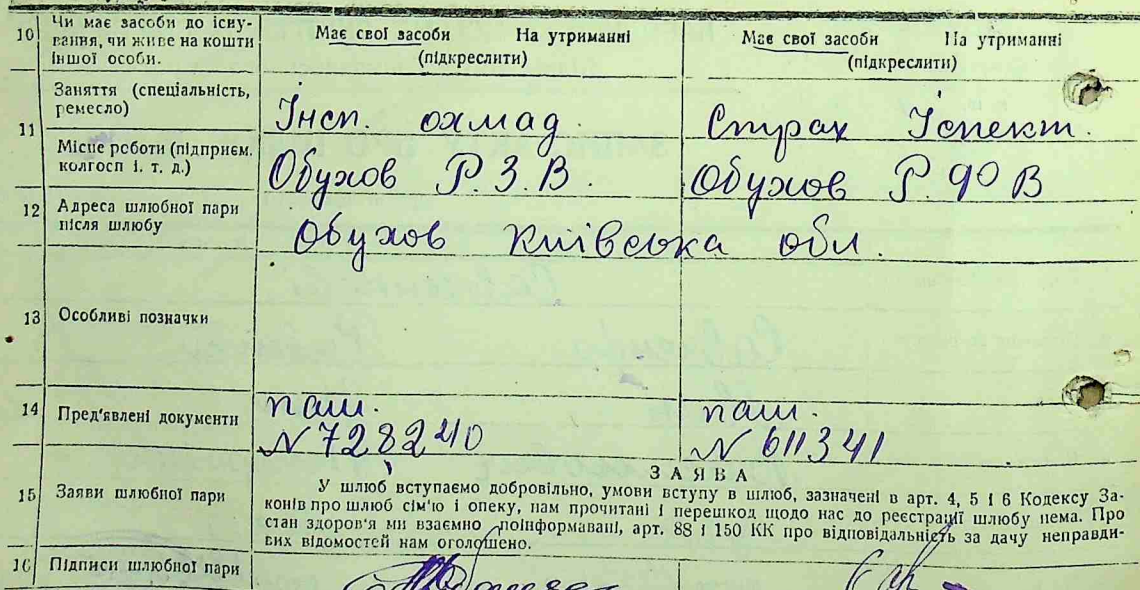 10 Чи має засоби до існу-
вання, чи живе на кошти
іншої особи.
Має свої засоби На утриманні
(підкреслити)
Має свої засоби На утриманні
(підкреслити)
11 Заняття (спеціальність,
ремесло)
Інсп. охмад.
Страх Іспект.
Місце роботи (підприєм.
колгосп і. т. д.)
Обухов Р.З.В.
Обухов Р ФО В
12 Адреса шлюбної пари
після шлюбу
Обухов Київська обл.
13 Особливі позначки
14 Пред'явлені документи
паш.
N 728240
паш.
N 611341
15 Заяви шлюбної пари
ЗАЯВА
У шлюб вступаємо добровільно, умови вступу в шлюб, зазначені в арт. 4, 5 і 6 Кодексу За-
конів про шлюб сім'ю і опеку, нам прочитані і перешкод щодо нас до реєстрації шлюбу нема. Про
стан здоров'я ми взаємно поінформавані, арт. 88 і 150 КК про відповідальність за дачу неправди-
вих відомостей нам оголошено.
16 Підписи шлюбної пари